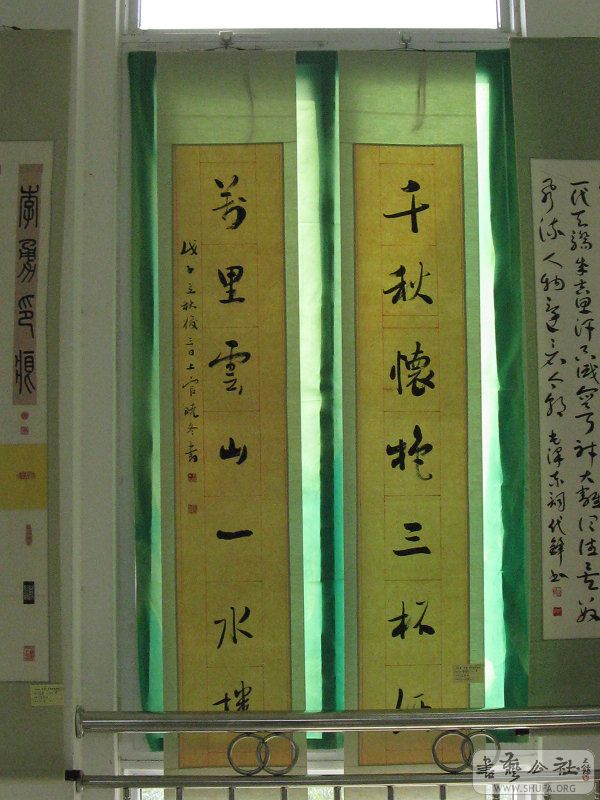 一代天驕成吉思汗只識彎弓射大雕俱往矣數
風流人物還看今朝 毛澤東詞
千秋懷抱三杯酒
萬里雲山一水樓
戊子立秋後三日上官曉冬書
李勇印痕
書藝公社
WWW.SHUFA.ORG